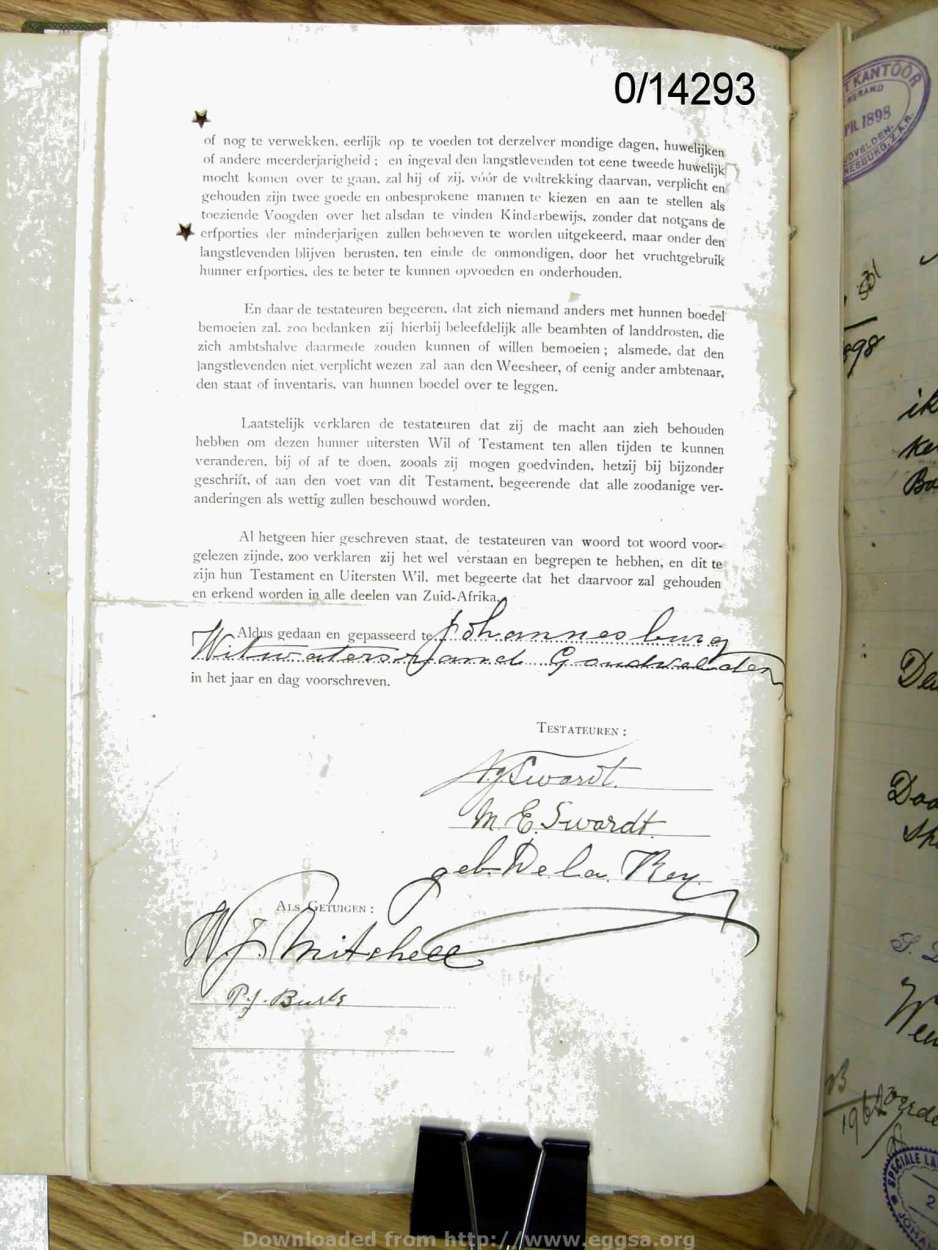 0/14293
of nog te verwekken, eerlijk op te voeden tot derzelver mondige dagen, huwelijken
of andere meerderjarigheid ; en ingeval den langstlevenden tot eene tweede huwelijk
mocht komen over te gaan, zal hij of zij, vóór de voltrekking daarvan, verplicht en
gehouden zijn twee goede en onbesprokene mannen te kiezen en aan te stellen als
toeziende Voogden over het alsdan te vinden Kinderbewijs, zonder dat notgans de
erfporties der minderjarigen zullen behoeven te worden uitgekeerd, maar onder den
langstlevenden blijven berusten, ten einde de onmondigen, door het vruchtgebruik
hunner erfporties, des te beter te kunnen opvoeden en onderhouden.
En daar de testateuren begeeren, dat zich niemand anders met hunnen boedel
bemoeien zal, zoo bedanken zij hierbij beleefdelijk alle beambten of landdrosten, die
zich ambtshalve daarmede zouden kunnen of willen bemoeien ; alsmede, dat den
langstlevenden niet verplicht wezen zal aan den Weesheer, of eenig ander ambtenaar,
den staat of inventaris, van hunnen boedel over te leggen.
Laatstelijk verklaren de testateuren dat zij de macht aan zieh behouden
hebben om dezen hunner uitersten Wil of Testament ten allen tijden te kunnen
veranderen, bij of af te doen, zooals zij mogen goedvinden, hetzij bij bijzonder
geschrift, of aan den voet van dit Testament, begeerende dat alle zoodanige ver-
anderingen als wettig zullen beschouwd worden.
Al hetgeen hier geschreven staat, de testateuren van woord tot woord voor-
gelezen zijnde, zoo verklaren zij het wel verstaan en begrepen te hebhen, en dit te
zijn hun Testament en Uitersten Wil, met begeerte dat het daarvoor zal gehouden
en erkend worden in alle deelen van Zuid-Afrika.
Aldus gedaan en gepasseerd te Johannesburg
Witwatersrand Goudvelden
in het jaar en dag voorschreven.
TESTATEUREN :
Swardt.
M. E. Swardt
geb. De la Rey
ALS GETUIGEN :
W. J. Mitchell
P. J.
KANTOOR
1898
898
ik
De
1962
SPECIALE LA
JOHAN
Downloaded from http://www.eggsa.org